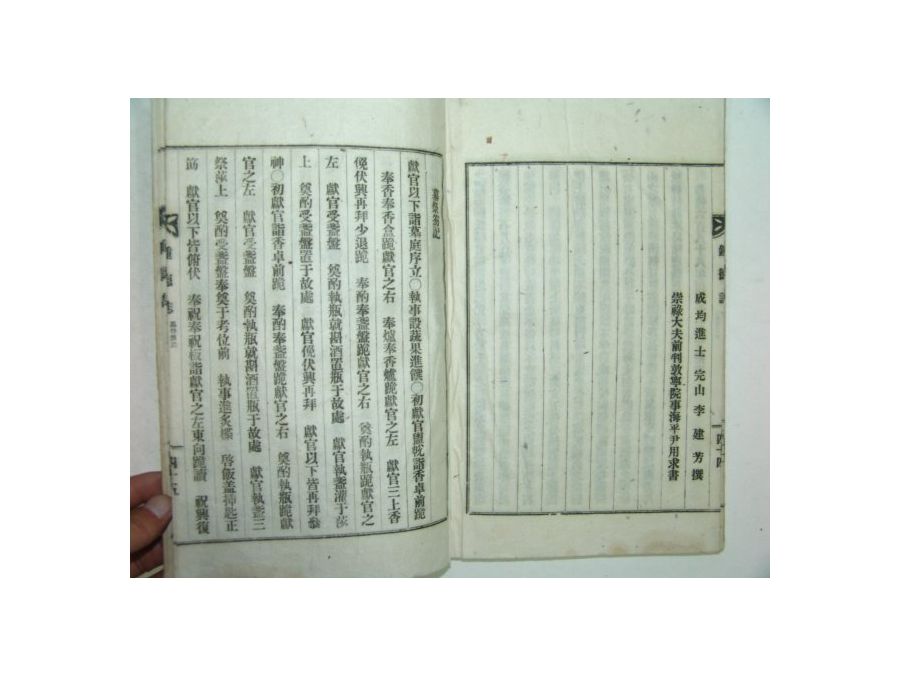 成均進士 完山 李建芳 撰
崇祿大夫前判敦寧院事海平尹用求書
四十四
墓祭笏記
獻官以下詣墓庭序立○執事設蔬果進饌○初獻官盥帨詣香卓前跪
奉香奉香盒跪獻官之右 奉爐奉香爐跪獻官之左 獻官三上香
俛伏興再拜少退跪 奉酌奉盞盤跪獻官之右 奠酌執瓶跪獻官之
左 獻官受盞盤 奠酌執瓶就斟酒置瓶于故處 獻官執盞灌于莎
上 奠酌受盞盤置于故處 獻官俛伏興再拜 獻官以下皆再拜參
神○初獻官詣香卓前跪 奉酌奉盞盤跪獻官之右 奠酌執瓶跪獻
官之左 獻官受盞盤 奠酌執瓶就斟酒置瓶于故處 獻官執盞三
祭莎上 奠酌受盞盤奉奠于考位前 執事進炙 啓飯盖揷匙正
筯 獻官以下皆俯伏 奉祝奉祝板詣獻官之左東向跪讀 祝興復
四十五